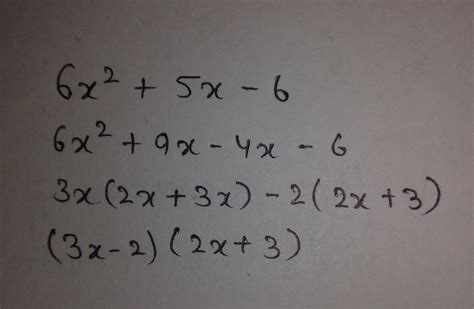 6x² + 5x - 6
6x² + 9x - 4x - 6
3x(2x + 3x) - 2(2x + 3)
(3x-2)(2x+3)